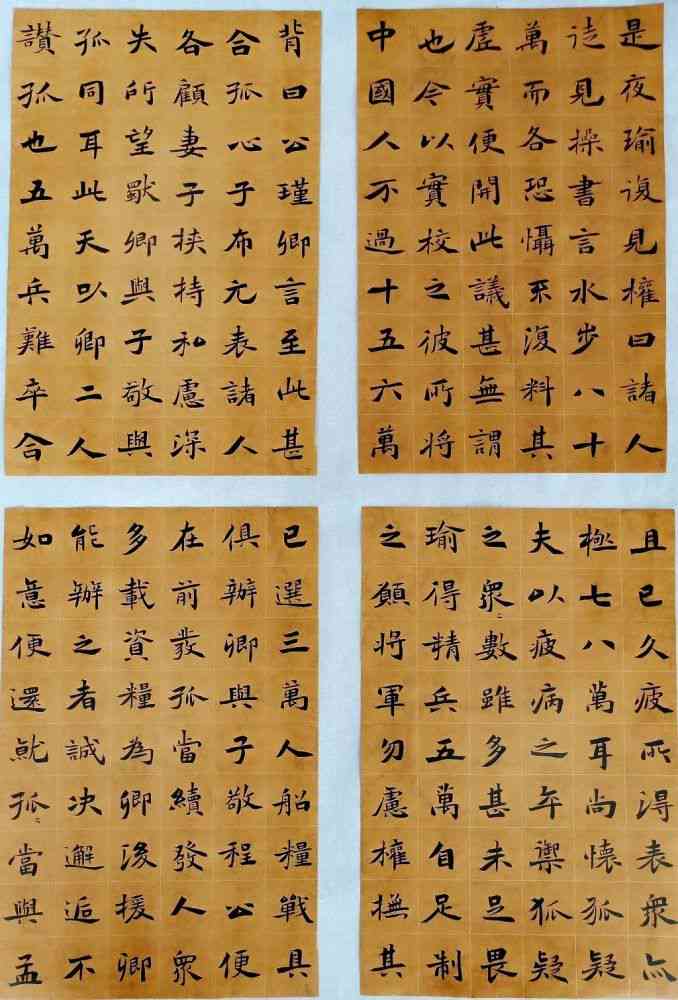 是夜瑜復見權曰諸人
徒見操書言水步八十
萬而各恐懾不復料其
虛實便開此議甚無謂
也今以實校之彼所將
中國人不過十五六萬
且已久疲所得表眾亦
極七八萬耳尚懷狐疑
夫以疲病之卒禦狐疑
之眾〻數雖多甚未足畏
瑜得精兵五萬自足制
之願將軍勿慮權撫其
背曰公瑾卿言至此甚
合孤心子布元表諸人
各顧妻子挾持私慮深
失所望獨卿與子敬與
孤同耳此天以卿二人
讚孤也五萬兵難卒合
已選三萬人船糧戰具
俱辦卿與子敬程公便
在前發孤當續發人眾
多載資糧為卿後援卿
能辦之者誠決邂逅不
如意便還就孤〻當與孟